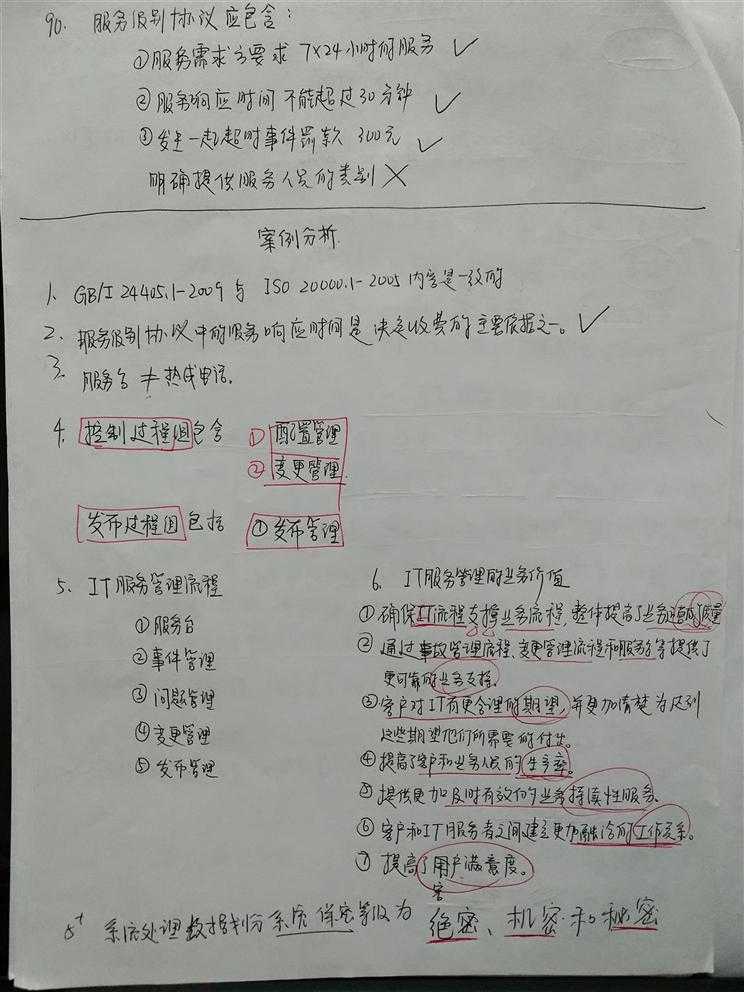 90. 服务级别协议应包含：
①服务需求方要求 7X24小时的服务 ✓
②服务响应时间不能超过30分钟 ✓
③发生一起超时事件罚款 300元 ✓
明确提供服务人员的类别 ✗
案例分析
1. GB/T 24405.1-2009 与 ISO 20000.1-2005 内容是一致的
2. 服务级别协议中的服务响应时间是决定收费的主要依据之一。✓
3. 服务台 ≠ 热线电话。
4. 控制过程组包含 ①配置管理
②变更管理
发布过程组包括 ①发布管理
5. IT服务管理流程
①服务台
②事件管理
③问题管理
④变更管理
⑤发布管理
6. IT服务管理的业务价值
①确保IT流程支撑业务流程，整体提高了业务运营质量
②通过事故管理流程、变更管理流程和服务台等提供了
更可靠的业务支持。
③客户对IT有更合理的期望，并更加清楚为达到
这些期望他们所需要的付出。
④提高了客户和业务人员的生产率。
⑤提供更加及时有效的业务持续性服务。
⑥客户和IT服务者之间建立更加融洽的工作关系。
⑦提高了用户满意度。
客
系统处理数据划分系统保密等级为 绝密、机密和秘密